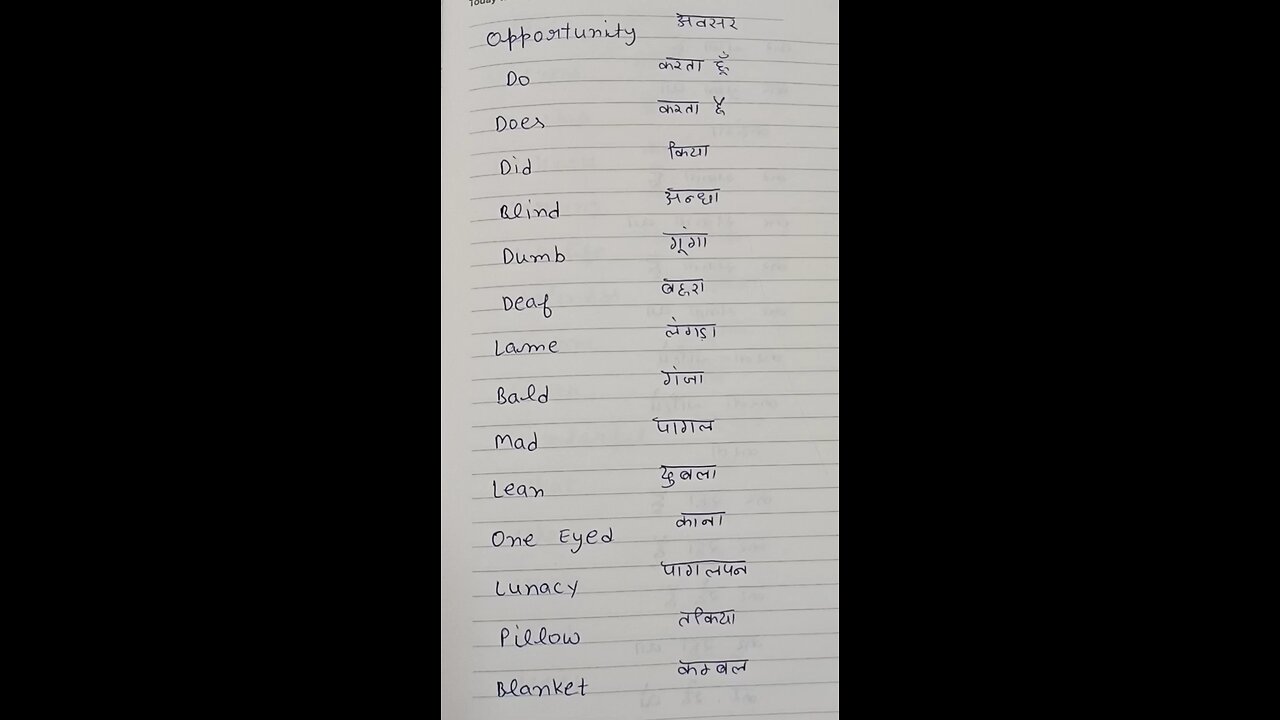 Today
Opportunity अवसर
Do करता हूँ
Does करता है
Did किया
Blind अन्धा
Dumb गूंगा
Deaf बहरा
Lame लंगड़ा
Bald गंजा
Mad पागल
Lean दुबला
One Eyed काना
Lunacy पागलपन
Pillow तकिया
Blanket कम्बल